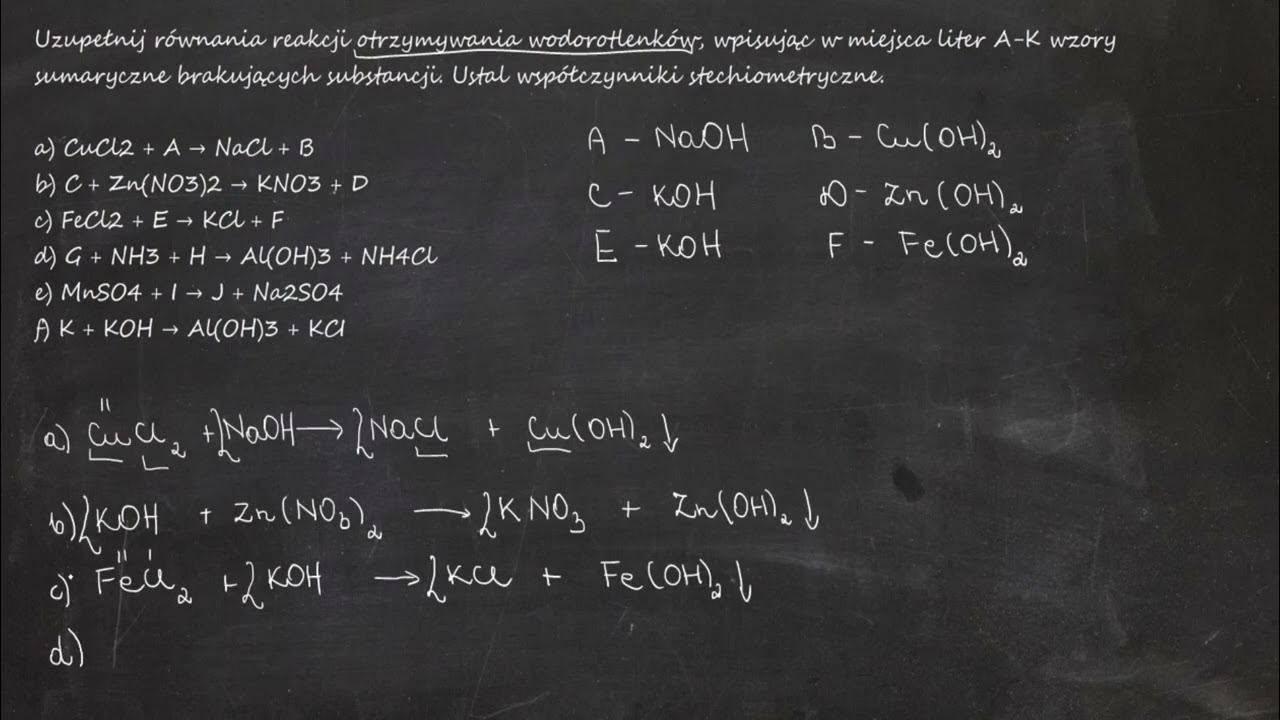 Uzupełnij równania reakcji otrzymywania wodorotlenków, wpisując w miejsca liter A-K wzory
sumaryczne brakujących substancji. Ustal współczynniki stechiometryczne.
a) CuCl2 + A → NaCl + B
b) C + Zn(NO3)2 → KNO3 + D
c) FeCl2 + E → KCl + F
d) G + NH3 + H → Al(OH)3 + NH4Cl
e) MnSO4 + I → J + Na2SO4
f) K + KOH → Al(OH)3 + KCl
A - NaOH B - Cu(OH)₂
C - KOH D - Zn(OH)₂
E - KOH F - Fe(OH)₂
II
a) CuCl₂ + 2NaOH → 2NaCl + Cu(OH)₂ ↓
b) 2KOH + Zn(NO₃)₂ → 2KNO₃ + Zn(OH)₂ ↓
II I
c) FeCl₂ + 2KOH → 2KCl + Fe(OH)₂ ↓
d)